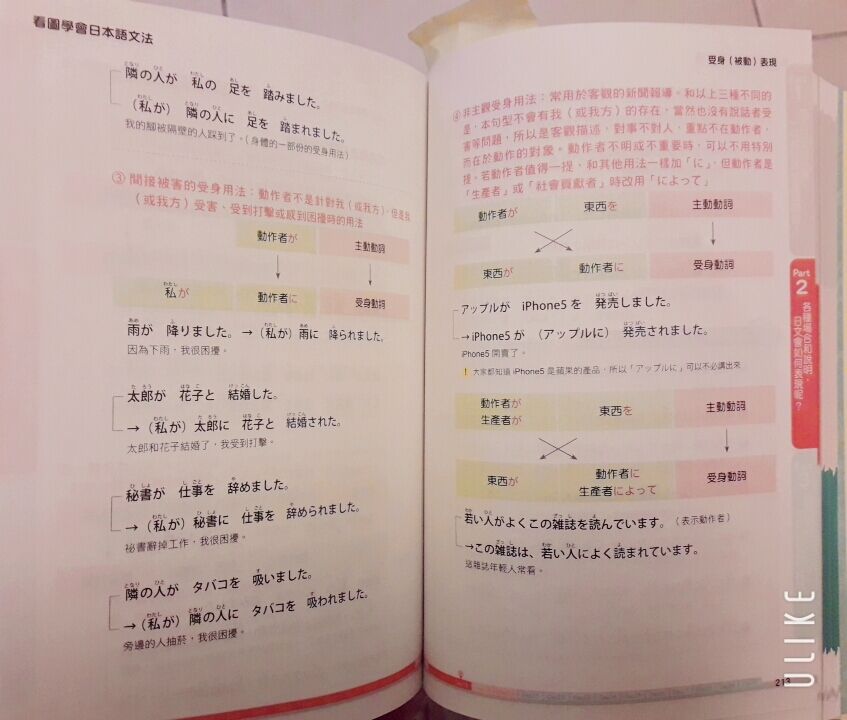 看圖學會日本語文法
隣の人が 私の 足を 踏みました。
（私が） 隣の人に 足を 踏まれました。
我的腳被隔壁的人踩到了。（身體的一部份的受身用法）
③ 間接被害的受身用法：動作者不是針對我（或我方），但是我
（或我方）受害、受到打擊或感到困擾時的用法
動作者が 主動動詞
私が 動作者に 受身動詞
雨が 降りました。 →（私が）雨に 降られました。
因為下雨，我很困擾。
太郎が 花子と 結婚した。
→（私が）太郎に 花子と 結婚された。
太郎和花子結婚了，我受到打擊。
秘書が 仕事を 辞めました。
→（私が）秘書に 仕事を 辞められました。
祕書辭掉工作，我很困擾。
隣の人が タバコを 吸いました。
→（私が）隣の人に タバコを 吸われました。
旁邊的人抽菸，我很困擾。
受身（被動）表現
④ 非主觀受身用法：常用於客觀的新聞報導。和以上三種不同的
是，本句型不會有我（或我方）的存在，當然也沒有說話者受
害等問題，所以是客觀描述，對事不對人，重點不在動作者，
而在於動作的對象。動作者不明或不重要時，可以不用特別
提。若動作者值得一提，和其他用法一樣加「に」，但動作者是
「生產者」或「社會貢獻者」時改用「によって」
動作者が 東西を 主動動詞
東西が 動作者に 受身動詞
アップルが iPhone5を 発売しました。
→iPhone5が （アップルに） 発売されました。
iPhone5 開賣了。
! 大家都知道 iPhone5 是蘋果的產品，所以「アップルに」可以不必講出來
動作者が
生產者が 東西を 主動動詞
東西が 動作者に
生產者によって 受身動詞
若い人がよくこの雑誌を読んでいます。（表示動作者）
→この雑誌は、若い人によく読まれています。
這雜誌年輕人常看。
Part
2
各種場合和說明，
日文會如何表現呢？
213
ULIKE